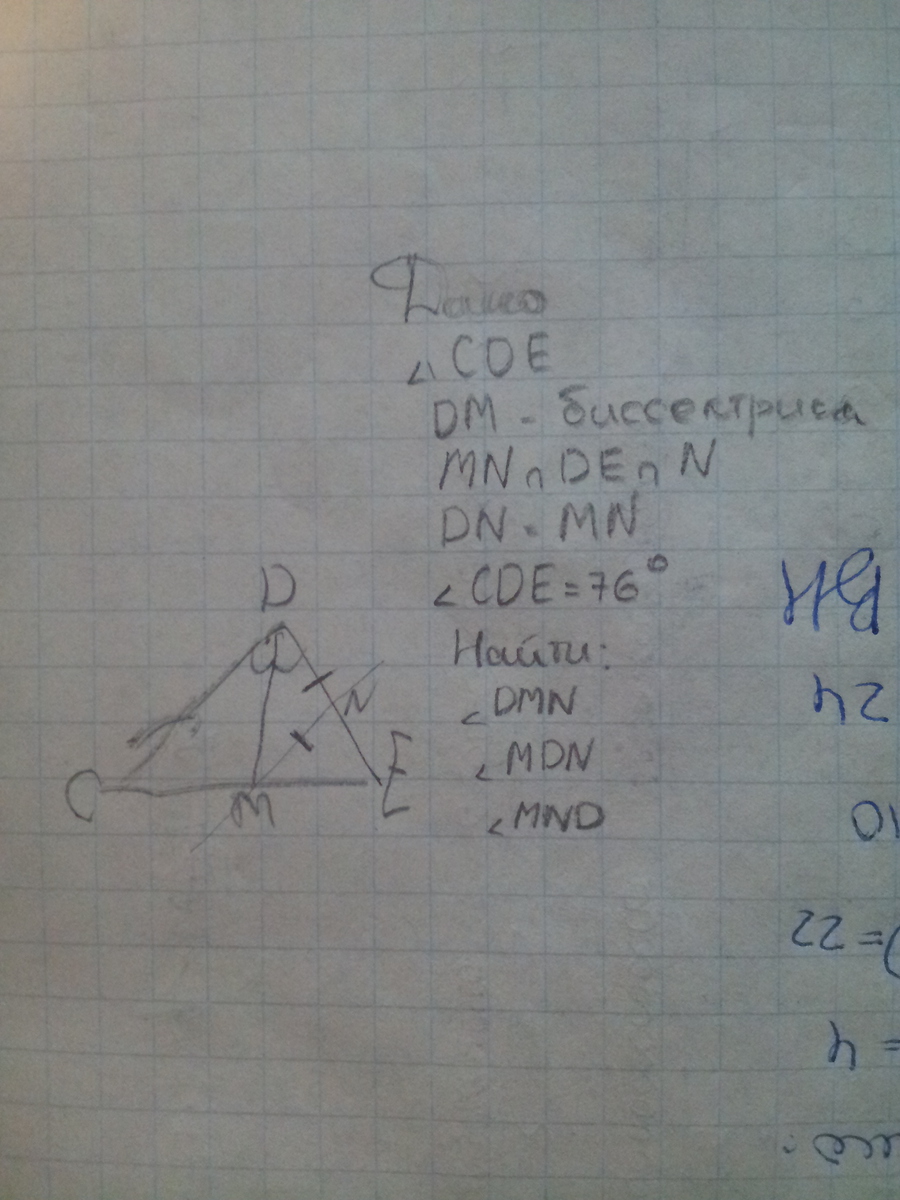 Дано
△ CDE
DM - биссектриса
MN ∩ DE ∩ N
DN = MN
∠ CDE = 76°
Найти:
∠ DMN
∠ MDN
∠ MND
D
N
C
M
E
24
10
= 22
= 4